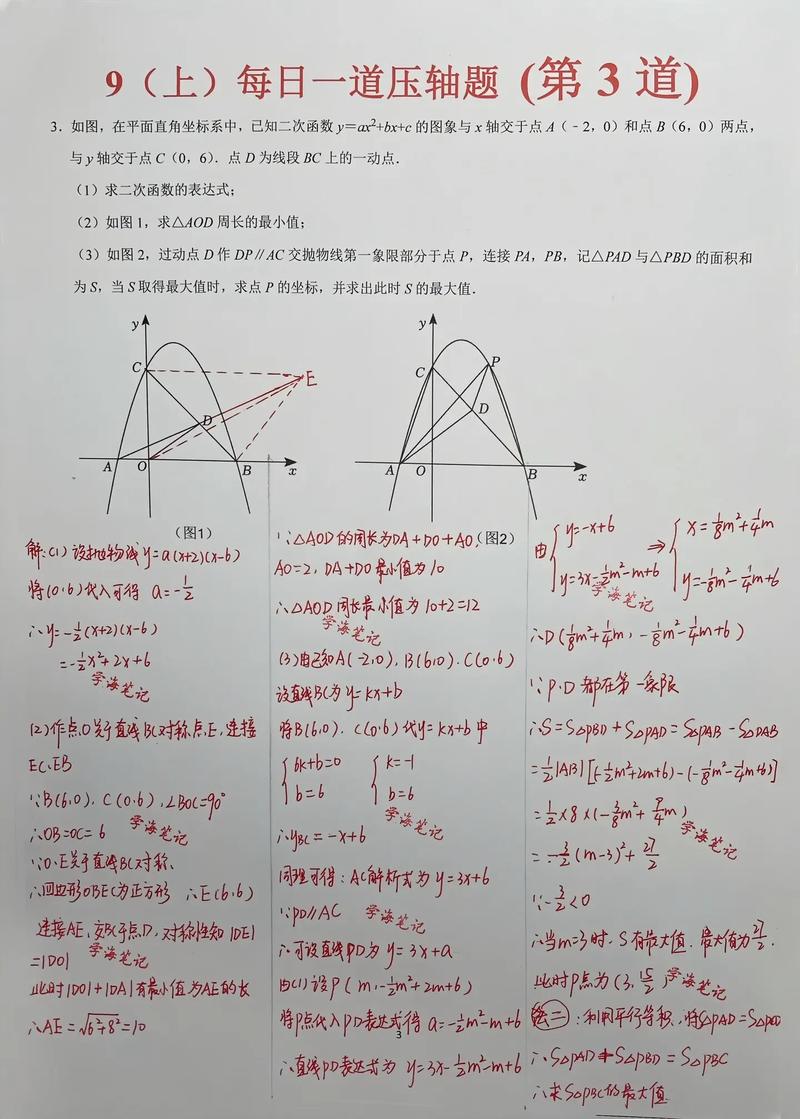 9（上）每日一道压轴题 (第 3 道)
3．如图，在平面直角坐标系中，已知二次函数 y＝ax²+bx+c 的图象与 x 轴交于点 A（﹣2，0）和点 B（6，0）两点，
与 y 轴交于点 C（0，6）．点 D 为线段 BC 上的一动点．
（1）求二次函数的表达式；
（2）如图 1，求△AOD 周长的最小值；
（3）如图 2，过动点 D 作 DP∥AC 交抛物线第一象限部分于点 P，连接 PA，PB，记△PAD 与△PBD 的面积和
为 S，当 S 取得最大值时，求点 P 的坐标，并求出此时 S 的最大值．
y
C
E
D
A
O
B
x
(图1)
y
C
P
D
A
O
B
x
(图2)
解:(1) 设抛物线 y=a(x+2)(x-6)
将(0,6)代入可得 a=-1/2
∴y=-1/2(x+2)(x-6)
=-1/2x²+2x+6
学海笔记
(2)作点O关于直线BC对称点E,连接
EC,EB
∵B(6,0), C(0,6),∠BOC=90°
∴OB=OC=6
学海笔记
∵O,E关于直线BC对称,
∴四边形OBEC为正方形 ∴E(6,6)
连接AE,交BC于点D,对称性知|DE|
=|DO|
学海笔记
此时|DO|+|DA|有最小值为AE的长
∴AE=√6²+8²=10
∵△AOD的周长为DA+DO+AO,
AO=2, DA+DO最小值为10
∴△AOD周长最小值为10+2=12
学海笔记
(3)由已知A(-2,0), B(6,0), C(0,6)
设直线BC为y=kx+b
将B(6,0), C(0,6)代y=kx+b中
{6k+b=0 {k=-1
{b=6 {b=6
学海笔记
∴yBC=-x+6
同理可得: AC解析式为y=3x+6
∵PD∥AC 学海笔记
∴可设直线PD为y=3x+a
由(1)设P(m,-1/2m²+2m+6)
将P点代入PD表达式得 a=-1/2m²-m+6
3
∴直线PD表达式为 y=3x-1/2m²-m+6
由{y=-x+6 ⇒ {x=1/8m²+1/4m
{y=3x-1/2m²-m+6 {y=-1/8m²-1/4m+6
学海笔记
∴D(1/8m²+1/4m, -1/8m²-1/4m+6)
∵P,D都在第一象限
∴S=S△PBD+S△PAD=S△PAB-S△DAB
=1/2|AB|[(-1/2m²+2m+6)-(-1/8m²-1/4m+6)]
=1/2×8×(-3/8m²+9/4m)
学海笔记
=-3/2(m-3)²+27/2
∵-3/2<0
∴当m=3时,S有最大值,最大值为27/2.
此时P点为(3,15/2)学海笔记
法二:利用平行等积,将S△PAD=S△PCD
∴S△PAD+S△PBD=S△PBC
∴求S△PBC的最大值